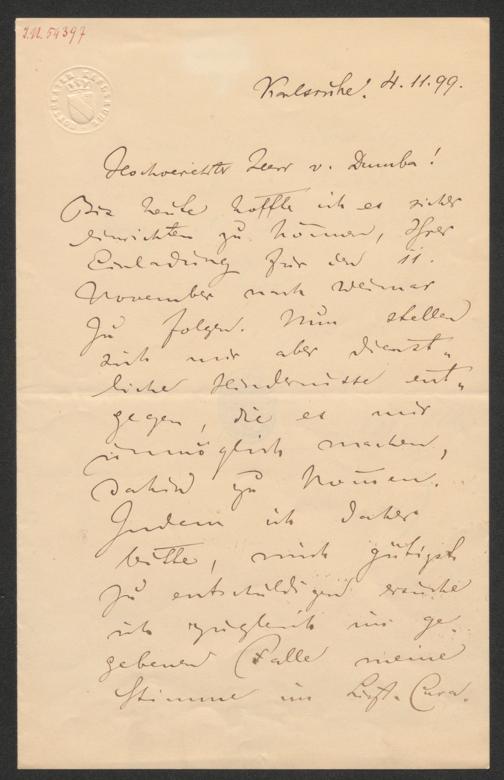 I.N. 54397
Karlsruhe. 4.11.99.
Hochverehrter Herr v. Dumba!
Bis heute hoffte ich es sicher
einrichten zu können, Ihrer
Einladung für den 11.
November nach Weimar
zu folgen. Nun stellen
sich mir aber dienst„
liche Hindernisse ent„
gegen, die es mir
unmöglich machen,
dahin zu kommen.
Indem ich daher
bitte, mich gütigst
zu entschuldigen ersuche
ich zugleich im ge„
gebenen Falle meine
Stimme im Cura„